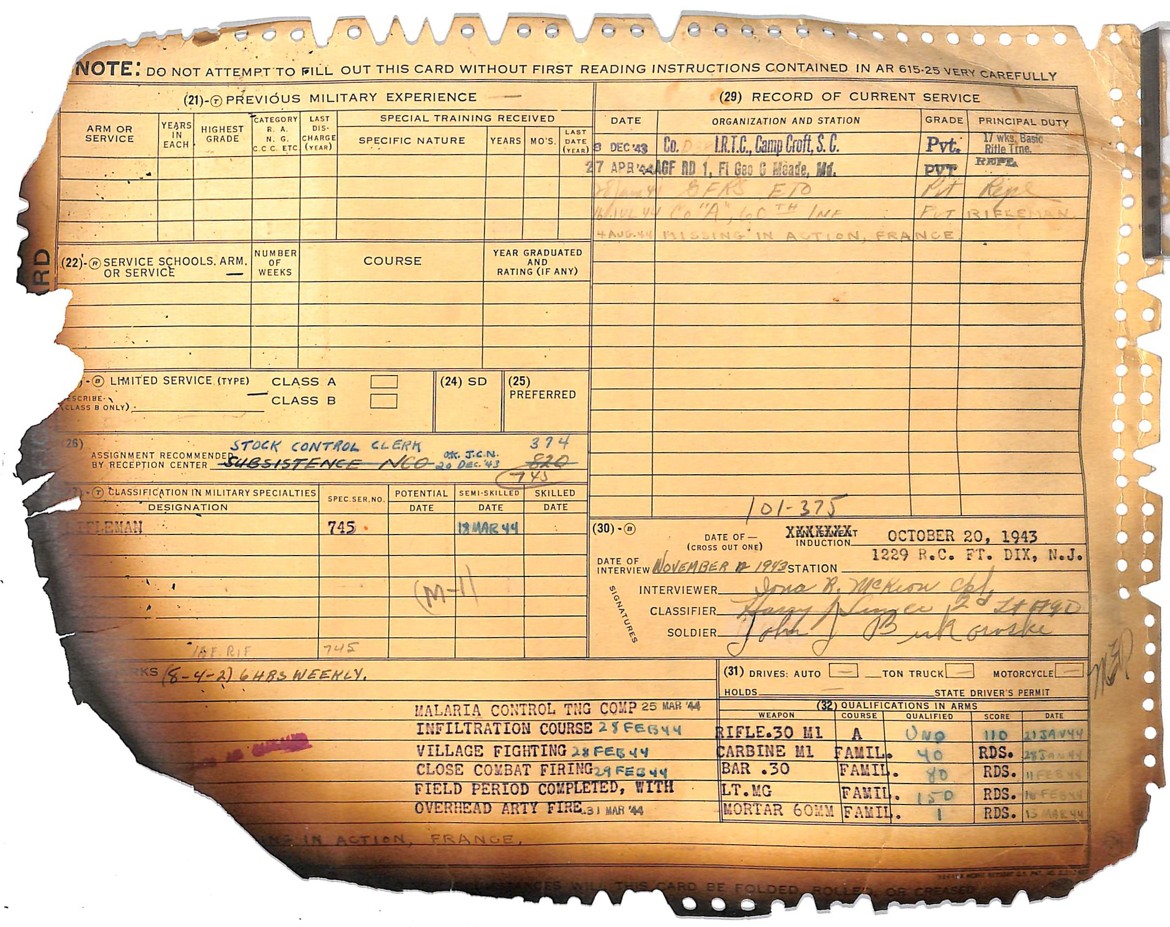 NOTE: DO NOT ATTEMPT TO FILL OUT THIS CARD WITHOUT FIRST READING INSTRUCTIONS CONTAINED IN AR 615-25 VERY CAREFULLY
(21)-T PREVIOUS MILITARY EXPERIENCE
ARM OR SERVICE
YEARS IN EACH
HIGHEST GRADE
CATEGORY R. A. N. G. C.C.C. ETC
LAST DIS-CHARGE (YEAR)
SPECIAL TRAINING RECEIVED
SPECIFIC NATURE
YEARS
MO'S.
LAST DATE (YEAR)
(22)-R SERVICE SCHOOLS, ARM. OR SERVICE
NUMBER OF WEEKS
COURSE
YEAR GRADUATED AND RATING (IF ANY)
RD
LIMITED SERVICE (TYPE) CLASS A
CLASS B
CLASS B ONLY)
(24) SD
(25) PREFERRED
26)
STOCK CONTROL CLERK 374
ASSIGNMENT RECOMMENDED BY RECEPTION CENTER
SUBSISTENCE NCO OK. J.C.N. 20 DEC.'43 820
745
T CLASSIFICATION IN MILITARY SPECIALTIES
DESIGNATION
SPEC.SER.NO.
POTENTIAL DATE
SEMI-SKILLED DATE
SKILLED DATE
745 18 MAR 44
(M-1)
745
(8-4-2) 6 HRS WEEKLY.
MALARIA CONTROL TNG COMP 25 MAR '44
INFILTRATION COURSE 28 FEB 44
VILLAGE FIGHTING 28 FEB 44
CLOSE COMBAT FIRING 29 FEB 44
FIELD PERIOD COMPLETED, WITH
OVERHEAD ARTY FIRE. 31 MAR '44
IN ACTION, FRANCE.
(29) RECORD OF CURRENT SERVICE
DATE ORGANIZATION AND STATION GRADE PRINCIPAL DUTY
DEC '43 Co. I.R.T.C., Camp Croft, S. C. Pvt. 17 wks. Basic Rifle Trng.
27 APR '44 AGF RD 1, Ft Geo G Meade, Md. PVT REPL
GFRS ETO Pvt Repl
JUL 44 Co "A", 60TH INF PVT RIFLEMAN
4 AUG. 44 MISSING IN ACTION, FRANCE
101-375
(30)-B
DATE OF— (CROSS OUT ONE) INDUCTION OCTOBER 20, 1943
1229 R.C. FT. DIX, N.J.
DATE OF INTERVIEW NOVEMBER 1943 STATION
SIGNATURES
INTERVIEWER
CLASSIFIER
SOLDIER John J
(31) DRIVES: AUTO TON TRUCK MOTORCYCLE
HOLDS STATE DRIVER'S PERMIT
(32) QUALIFICATIONS IN ARMS
WEAPON COURSE QUALIFIED SCORE DATE
RIFLE.30 M1 A UNQ 110 21 JAN 44
CARBINE M1 FAMIL. 40 RDS.
BAR .30 FAMIL. 80 RDS. 11 FEB 44
LT.MG FAMIL. 150 RDS.
MORTAR 60MM FAMIL. 1 RDS.
WILL THIS CARD BE FOLDED, ROLLED, OR CREASED